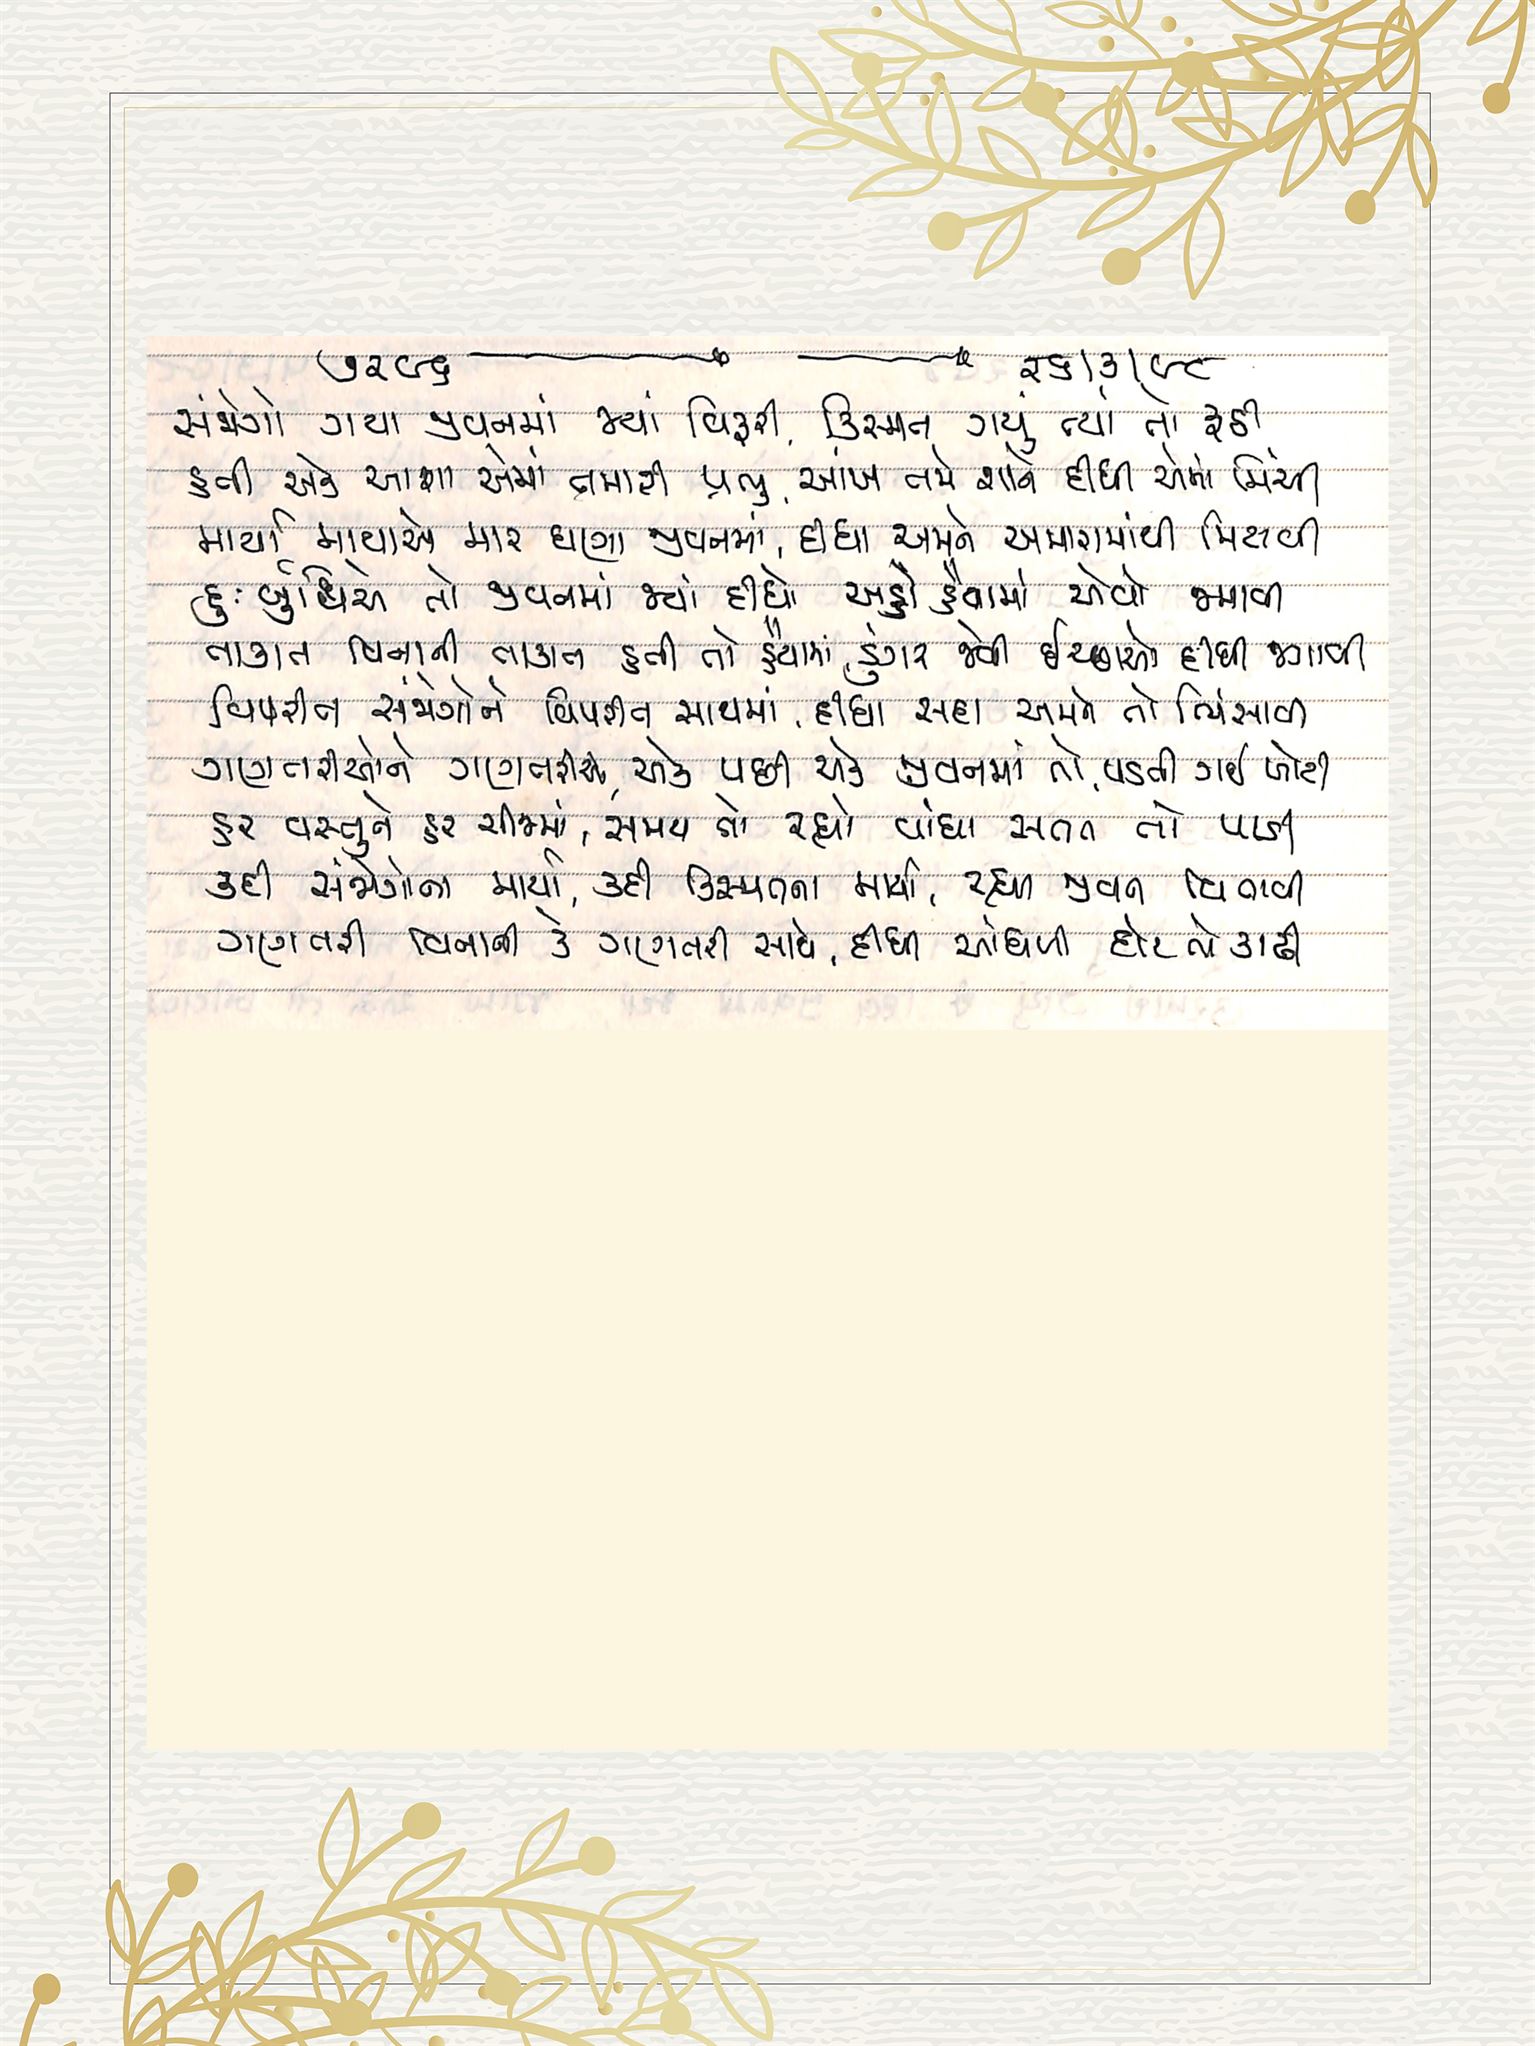 ૭૨૯૬ ૨૬/૩/૯૮
સંજોગો ગયા જીવનમાં જ્યાં વિફરી, કિસ્મત ગયું ત્યાં તો રૂઠી
હતી એક આશા એમાં તમારી પ્રભુ, આંખ તમે શાને દીધી એમાં મિંચી
માર્યા માયાએ માર ઘણા જીવનમાં, દીધા અમને અમારામાંથી મિટાવી
દુઃર્બુધ્ધિએ તો જીવનમાં જ્યાં દીધો અડ્ડો હૈયામાં એવો જમાવી
તાકાત વિનાની તાકાત હતી તો હૈયામાં, ડુંગર જેવી ઈચ્છાઓ દીધી જગાવી
વિપરીત સંજોગોને વિપરીત સાથમાં, દીધા સદા અમને તો ત્યાં ફસાવી
ગણતરીઓને ગણતરીઓ, એક પછી એક જીવનમાં તો, પડતી ગઈ ખોટી
હર વસ્તુને હર ચીજમાં, સમય તો રહ્યો વાંધા સતત તો પાડી
કદી સંજોગોના માર્યા, કદી કિસ્મતના માર્યા, રહ્યા જીવન વિતાવી
ગણતરી વિનાની કે ગણતરી સાથે, દીધી આંધળી દોટ તો કાઢી